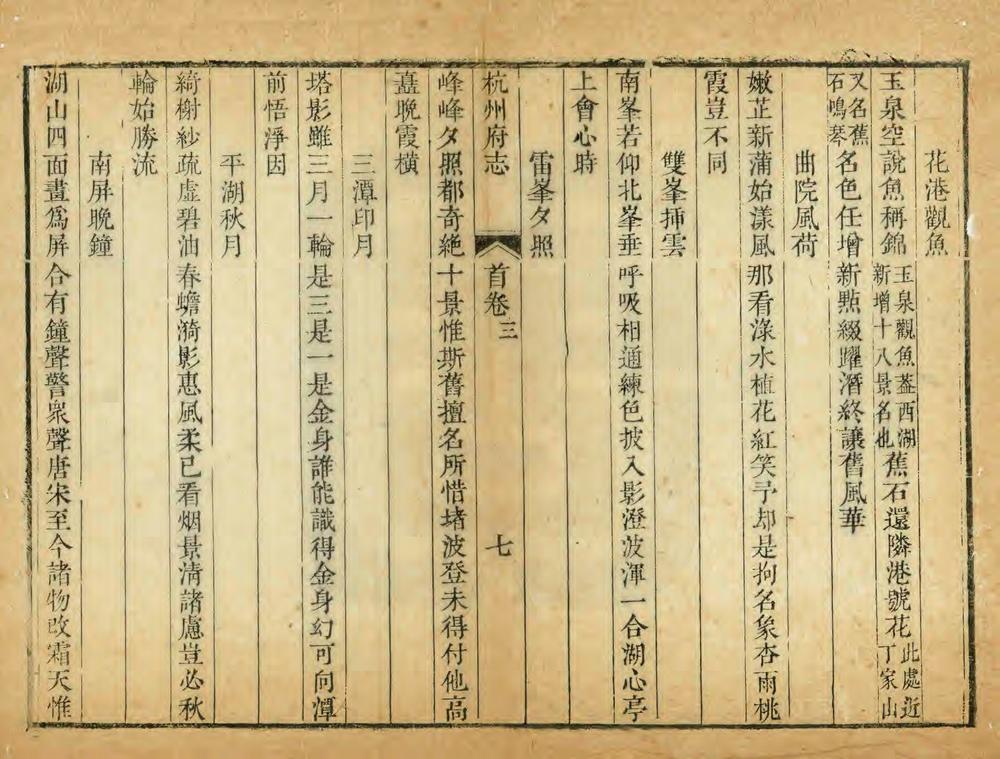 花港觀魚
玉泉空說魚稱錦玉泉觀魚葢西湖新增十八景名也蕉石還隣港號花此處近丁家山
又名蕉石鳴琴名色任增新㸃綴躍潛終讓舊風華
曲院風荷
嫩芷新蒲始漾風那看淥水植花紅笑予却是拘名象杏雨桃
霞豈不同
雙峯揷雲
南峯若仰北峯垂呼吸相通練色披入影澄波渾一合湖心亭
上會心時
雷峯夕照
杭州府志
首卷三
七
峰峰夕照都奇絶十景惟斯舊擅名所惜堵波登未得付他高
矗晚霞橫
三潭印月
塔影雖三月一輪是三是一是金身誰能識得金身幻可向潭
前悟淨因
平湖秋月
綺榭紗疏虛碧油春蟾漪影惠風柔已看烟景清諸慮豈必秋
輪始勝流
南屏晚鐘
湖山四面畫爲屏合有鐘聲警衆聲唐宋至今諸物改霜天惟